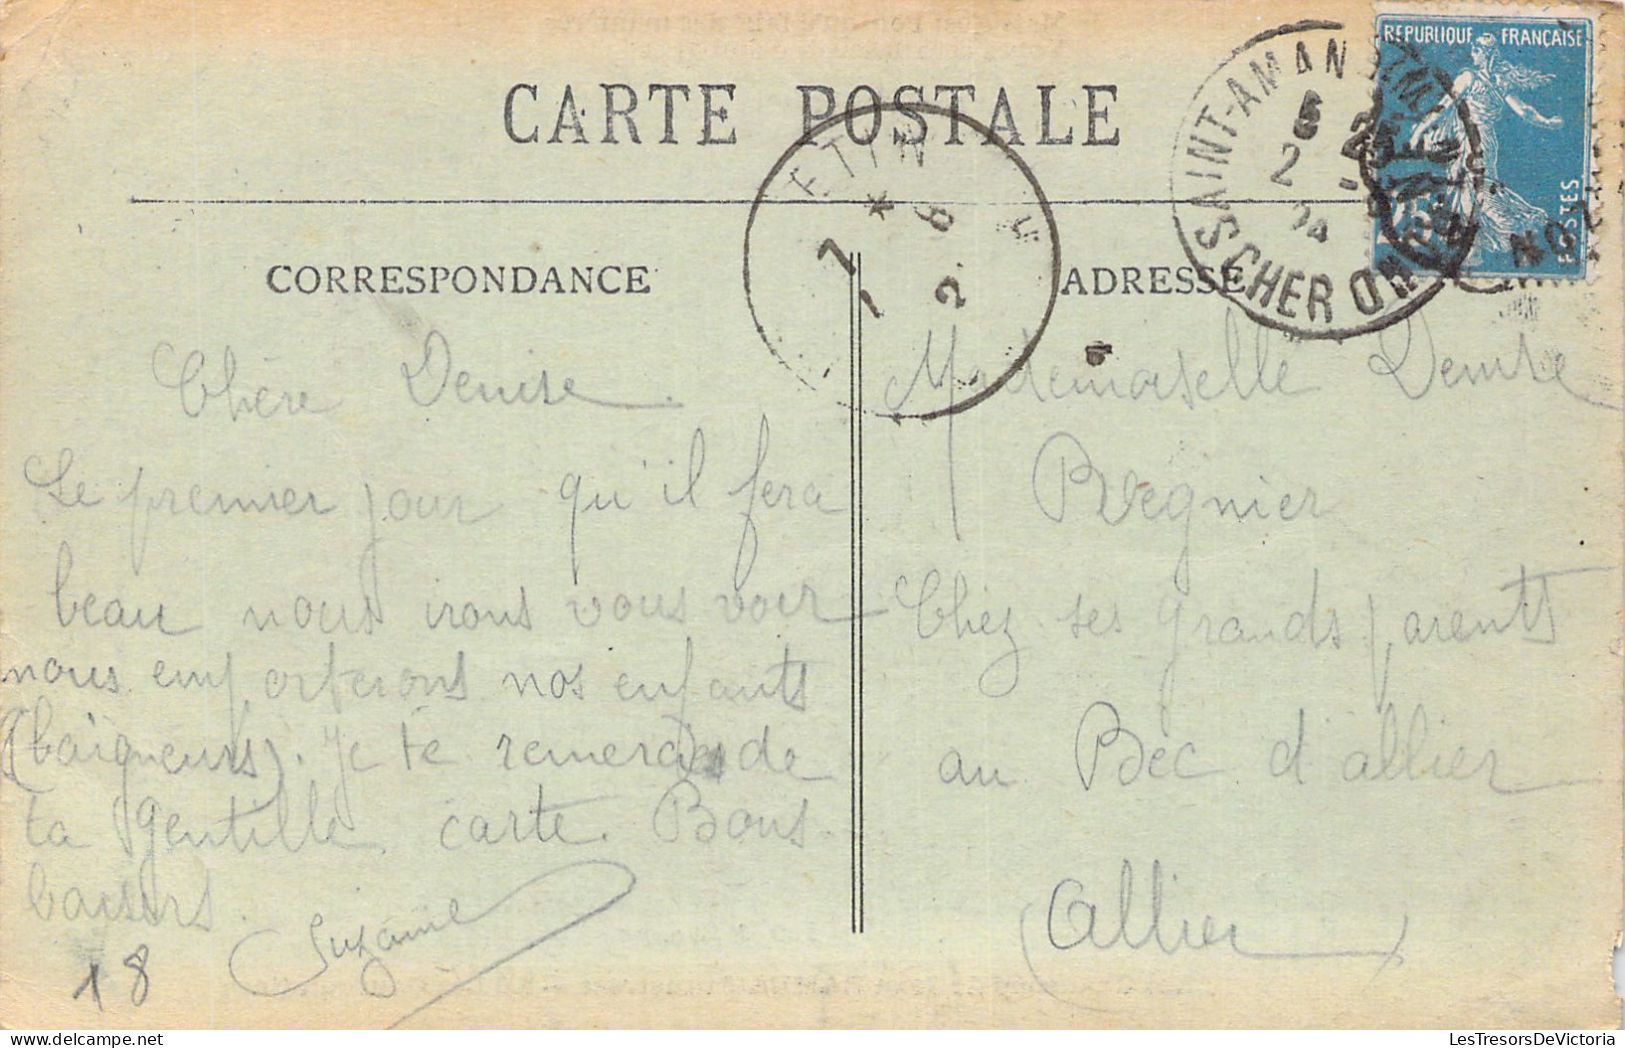 CARTE POSTALE
CORRESPONDANCE
ADRESSE
REPUBLIQUE FRANÇAISE
POSTES
25
SAINT-AMAND
CHER
Chère Denise.
Le premier jour qu'il fera
beau nous irons vous voir
nous emporterons nos enfants
(baigneurs). Je te remercie de
ta gentille carte. Bons
baisers.
Suzanne
18
Mademoiselle Denise
Regnier
Chez ses grands parents
au Bec d'allier
(Allier)
LesTresorsDeVictoria